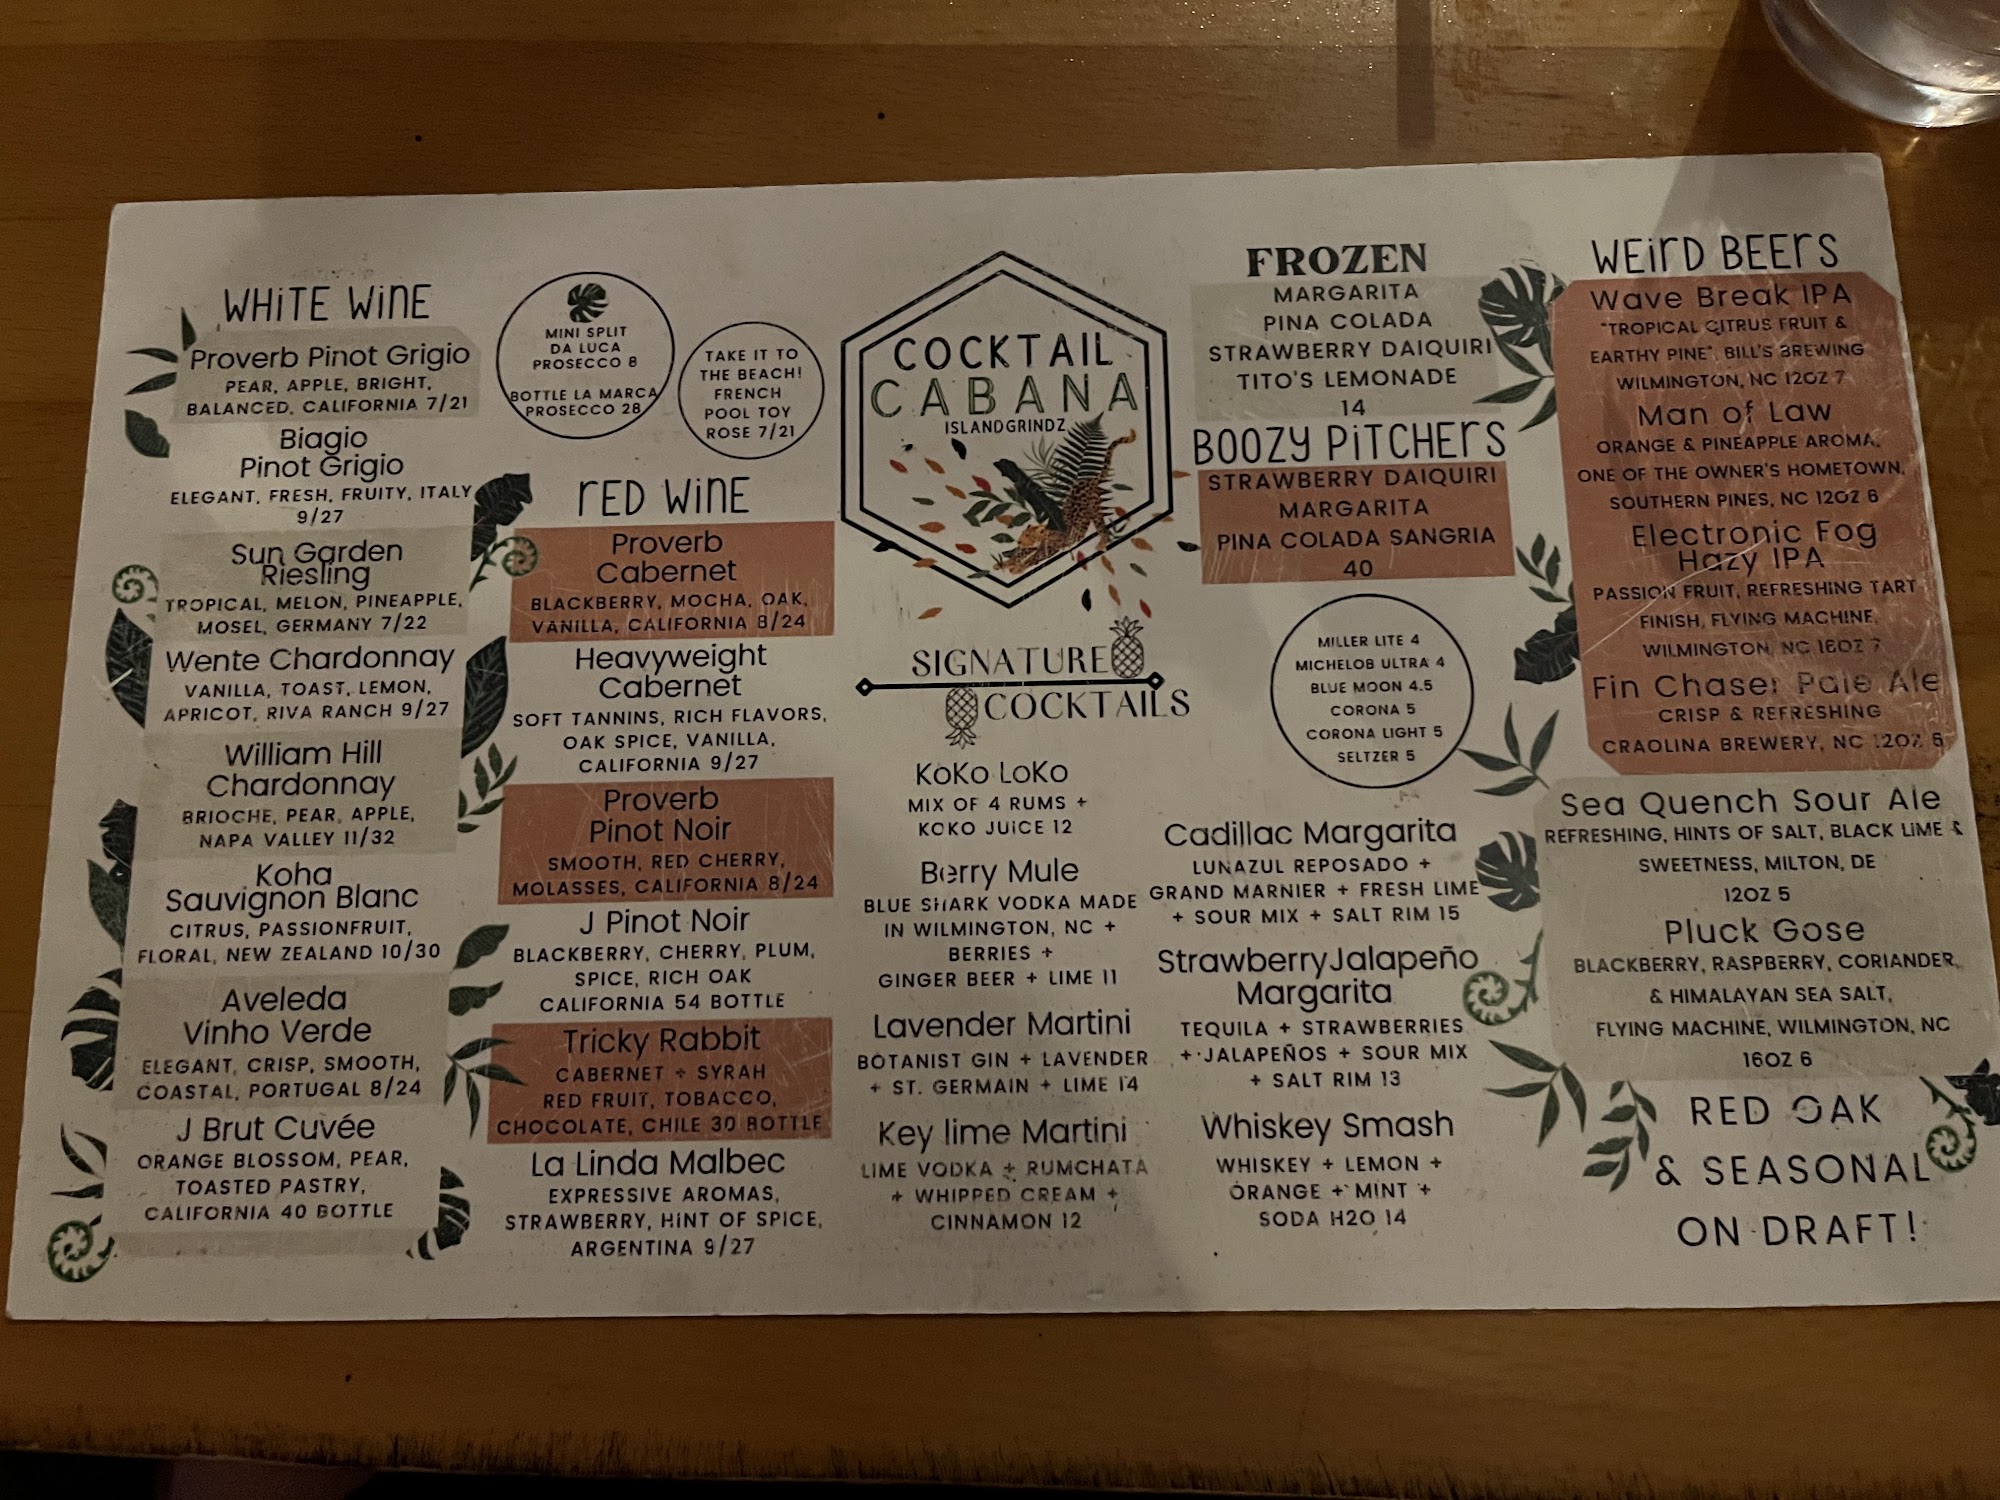 WHITE WINE
Proverb Pinot Grigio
PEAR, APPLE, BRIGHT,
BALANCED, CALIFORNIA 7/21
Biagio
Pinot Grigio
ELEGANT, FRESH, FRUITY, ITALY
9/27
Sun Garden
Riesling
TROPICAL, MELON, PINEAPPLE,
MOSEL, GERMANY 7/22
Wente Chardonnay
VANILLA, TOAST, LEMON,
APRICOT, RIVA RANCH 9/27
William Hill
Chardonnay
BRIOCHE, PEAR, APPLE,
NAPA VALLEY 11/32
Koha
Sauvignon Blanc
CITRUS, PASSIONFRUIT,
FLORAL, NEW ZEALAND 10/30
Aveleda
Vinho Verde
ELEGANT, CRISP, SMOOTH,
COASTAL, PORTUGAL 8/24
J Brut Cuvée
ORANGE BLOSSOM, PEAR,
TOASTED PASTRY,
CALIFORNIA 40 BOTTLE
MINI SPLIT
DA LUCA
PROSECCO 8
BOTTLE LA MARCA
PROSECCO 28
TAKE IT TO
THE BEACH!
FRENCH
POOL TOY
ROSE 7/21
RED WINE
Proverb
Cabernet
BLACKBERRY, MOCHA, OAK,
VANILLA, CALIFORNIA 8/24
Heavyweight
Cabernet
SOFT TANNINS, RICH FLAVORS,
OAK SPICE, VANILLA,
CALIFORNIA 9/27
Proverb
Pinot Noir
SMOOTH, RED CHERRY,
MOLASSES, CALIFORNIA 8/24
J Pinot Noir
BLACKBERRY, CHERRY, PLUM,
SPICE, RICH OAK
CALIFORNIA 54 BOTTLE
Tricky Rabbit
CABERNET + SYRAH
RED FRUIT, TOBACCO,
CHOCOLATE, CHILE 30 BOTTLE
La Linda Malbec
EXPRESSIVE AROMAS,
STRAWBERRY, HINT OF SPICE,
ARGENTINA 9/27
COCKTAIL
CABANA
ISLANDGRINDZ
SIGNATURE
COCKTAILS
KoKo LoKo
MIX OF 4 RUMS +
KOKO JUICE 12
Berry Mule
BLUE SHARK VODKA MADE
IN WILMINGTON, NC +
BERRIES +
GINGER BEER + LIME 11
Lavender Martini
BOTANIST GIN + LAVENDER
+ ST. GERMAIN + LIME 14
Key lime Martini
LIME VODKA + RUMCHATA
+ WHIPPED CREAM +
CINNAMON 12
FROZEN
MARGARITA
PINA COLADA
STRAWBERRY DAIQUIRI
TITO'S LEMONADE
14
BOOZY PITCHERS
STRAWBERRY DAIQUIRI
MARGARITA
PINA COLADA SANGRIA
40
MILLER LITE 4
MICHELOB ULTRA 4
BLUE MOON 4.5
CORONA 5
CORONA LIGHT 5
SELTZER 5
Cadillac Margarita
LUNAZUL REPOSADO +
GRAND MARNIER + FRESH LIME
+ SOUR MIX + SALT RIM 15
Strawberry Jalapeño
Margarita
TEQUILA + STRAWBERRIES
+ JALAPEÑOS + SOUR MIX
+ SALT RIM 13
Whiskey Smash
WHISKEY + LEMON +
ORANGE + MINT +
SODA H2O 14
WEIRD BEERS
Wave Break IPA
"TROPICAL CITRUS FRUIT &
EARTHY PINE", BILL'S BREWING
WILMINGTON, NC 12OZ 7
Man of Law
ORANGE & PINEAPPLE AROMA,
ONE OF THE OWNER'S HOMETOWN,
SOUTHERN PINES, NC 12OZ 6
Electronic Fog
Hazy IPA
PASSION FRUIT, REFRESHING TART
FINISH, FLYING MACHINE,
WILMINGTON, NC 16OZ 7
Fin Chaser Pale Ale
CRISP & REFRESHING
CRAOLINA BREWERY, NC 12OZ 6
Sea Quench Sour Ale
REFRESHING, HINTS OF SALT, BLACK LIME &
SWEETNESS, MILTON, DE
12OZ 5
Pluck Gose
BLACKBERRY, RASPBERRY, CORIANDER,
& HIMALAYAN SEA SALT,
FLYING MACHINE, WILMINGTON, NC
16OZ 6
RED OAK
& SEASONAL
ON DRAFT!